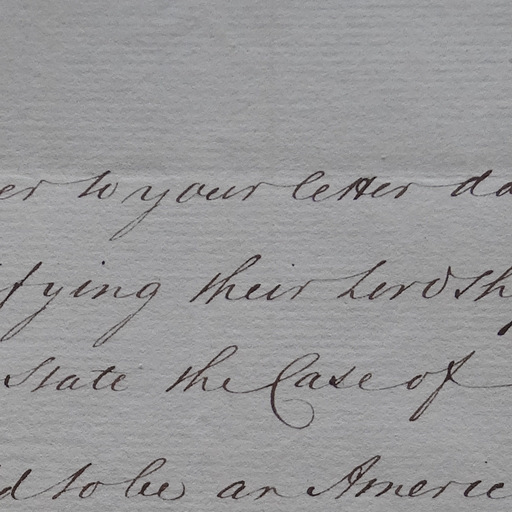 er to your letter da
ifying their Lordsh
state the Case of
d to be an Americ